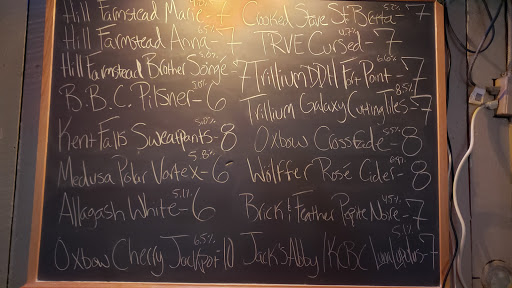 Hill Farmstead Marie - 7
Hill Farmstead Anna - 7
Hill Farmstead Brother Soigné - 7
B.B.C. Pilsner - 6
Kent Falls Sweatpants - 8
Medusa Polar Vortex - 6
Allagash White - 6
Oxbow Cherry Jackpot - 10
Crooked Stave St Bretta - 7
TRVE Cursed - 7
Trillium DDH Fort Point - 7
Trillium Galaxy Cutting Tiles - 7
Oxbow Crossfade - 8
Wölffer Rosé Cider - 8
Brick & Feather Pepite Noire - 7
Jack's Abby / KCBC - 7